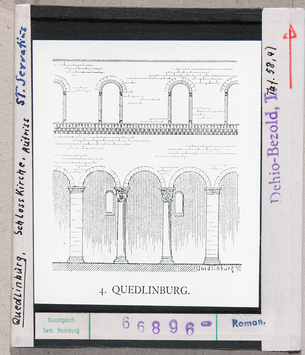 Quedlinburg. Schlosskirche. Aufriss St. Servatius
Dehio-Bezold, T
Taf. 58,4)
Quedlinburg
4. QUEDLINBURG.
Kunstgesch.
Sem. Hamburg
66896-
Roman.